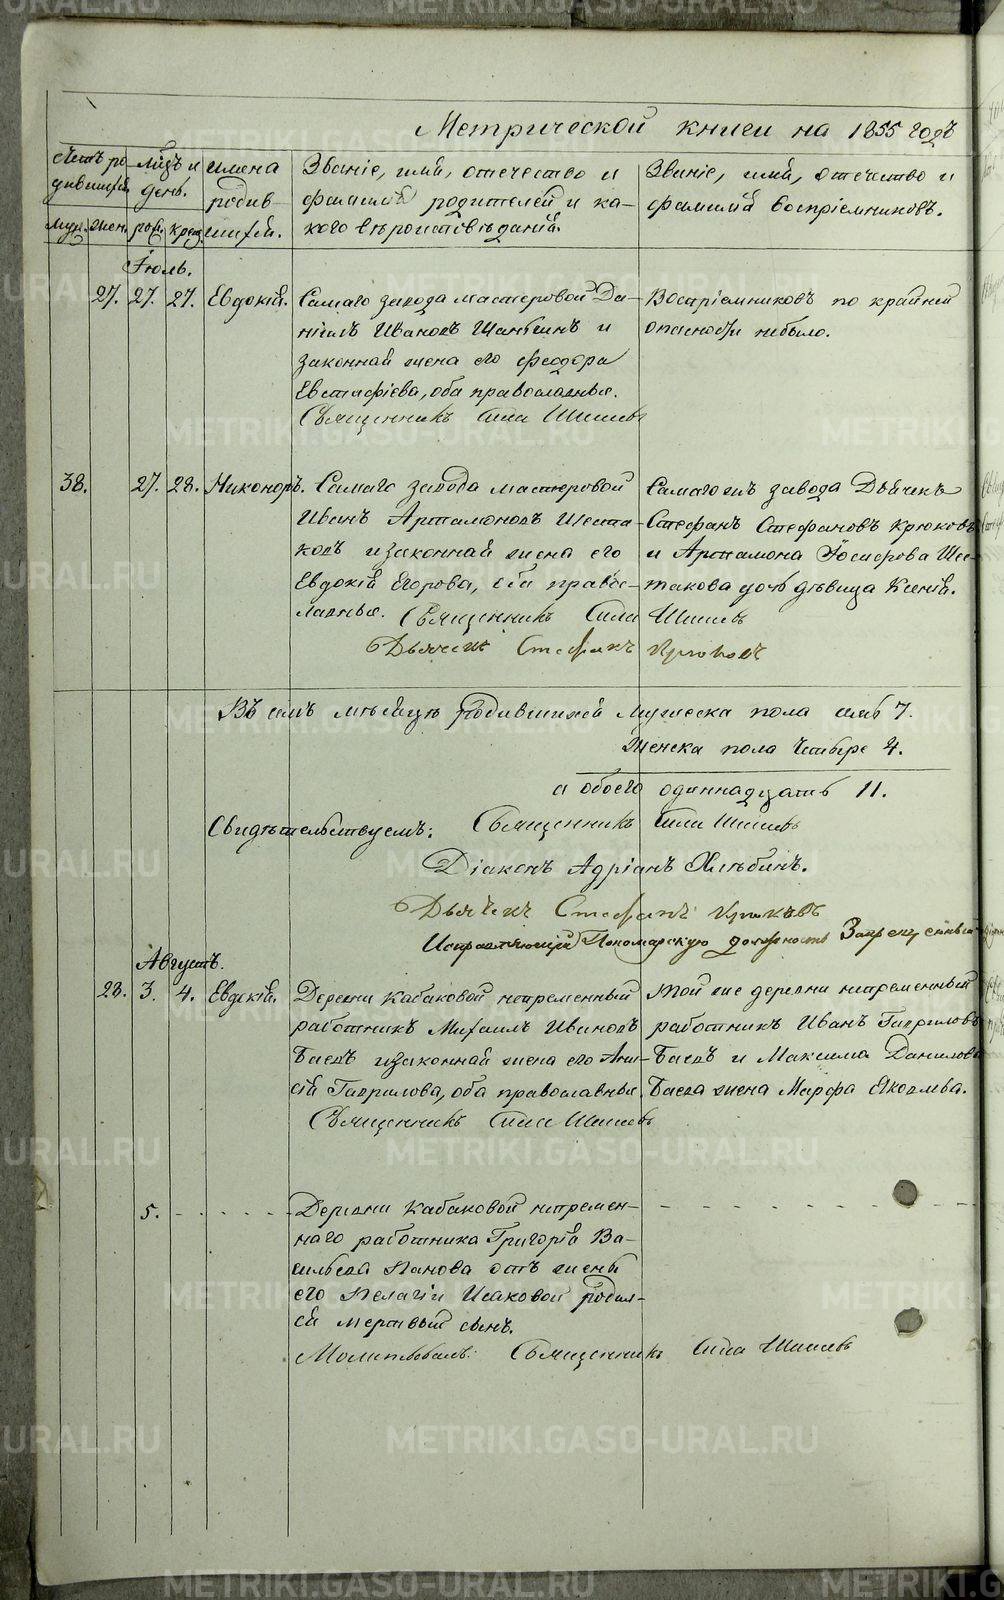 Метрической книги на 1855 годъ
Счетъ родившихся
Мѣсяцъ и день.
Имена родившихся.
Званіе, имя, отечество и фамилія родителей и какого вѣроисповѣданія.
Званіе, имя, отечество и фамилія воспріемниковъ.
муж. жен. рож. крещ.
Іюль.
27. 27. 27. Евдокія. Самаго завода мастеровой Да- Воспріемниковъ по крайней
ніилъ Ивановъ и опасности небыло.
законная жена его Феодора
Евстафіева, оба православные.
Священникъ Сила Шишевъ
38. 27. 28. Никоноръ. Самаго завода мастеровой Самагожъ завода Дьячекъ
Иванъ Артамоновъ Шеста- Стефанъ Стефановъ Крюковъ
ковъ изаконная жена его и Артамона Іосифова Шес-
Евдокія Егорова, оба правос- такова дочь дѣвица Ксенія.
лавные. Священникъ Сила Шишевъ
Дьячекъ Стефанъ Крюковъ
Въ семъ мѣсяцѣ родившихся Мужеска пола семь 7.
Женска пола четыре 4.
а обоего одиннадцать 11.
Свидѣтельствуемъ: Священникъ Сила Шишевъ
Діаконъ Адріанъ Хлѣбинъ.
Дьячекъ Стефанъ Крюковъ
Исправляющій Пономарскую должность
Августъ.
28. 3. 4. Евдокія. Деревни Кабаковой непременный Той же деревни непременный
работникъ Михаилъ Ивановъ работникъ Иванъ Гавриловъ
Баевъ изаконная жена его Ани- Баевъ и Максима Данилова
сія Гаврилова, оба православные. Баева жена Марфа Яковлева.
Священникъ Сила Шишевъ
5. Деревни Кабаковой непремен-
наго работника Григорія Ва-
сильева Панова отъ жены
его Пелагіи Исаковой родил-
ся мертвый сынъ.
Молитвовалъ: Священникъ Сила Шишевъ
METRIKI.GASO-URAL.RU